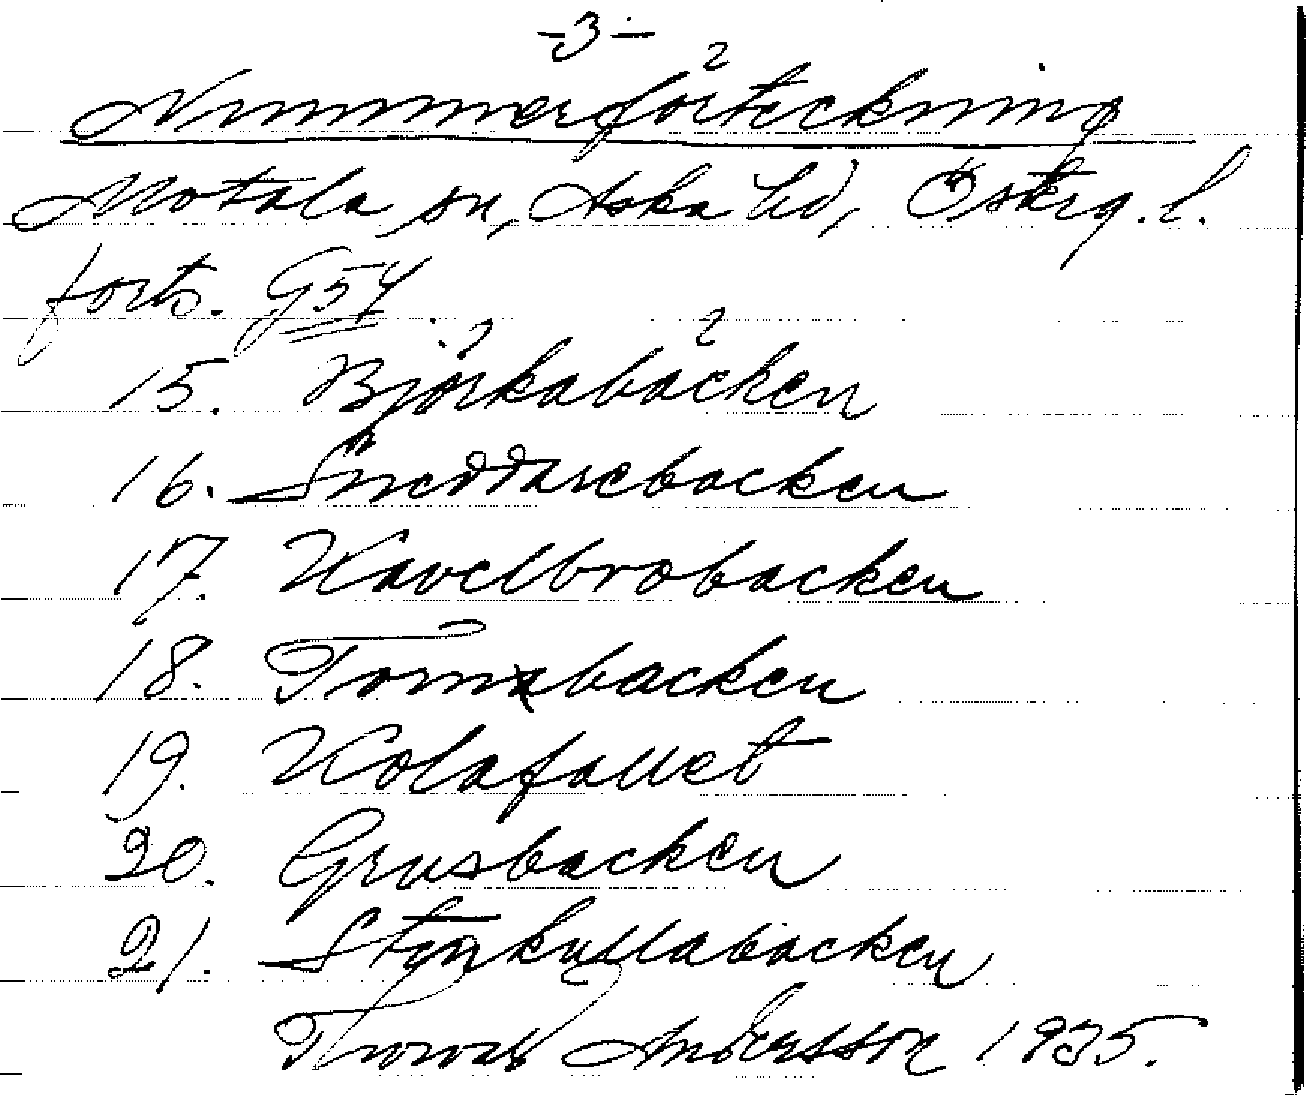 -3-
Nummerförteckning
Motala sn, Aska hd, Österg. l.
forts. G54
15. Björkabäcken
16. Sneddarebacken
17. Kavelbrobacken
18. Tornabacken
19. Kolafallet
20. Grusbacken
21. Stenkullabacken
Thorvald Andersson 1935.